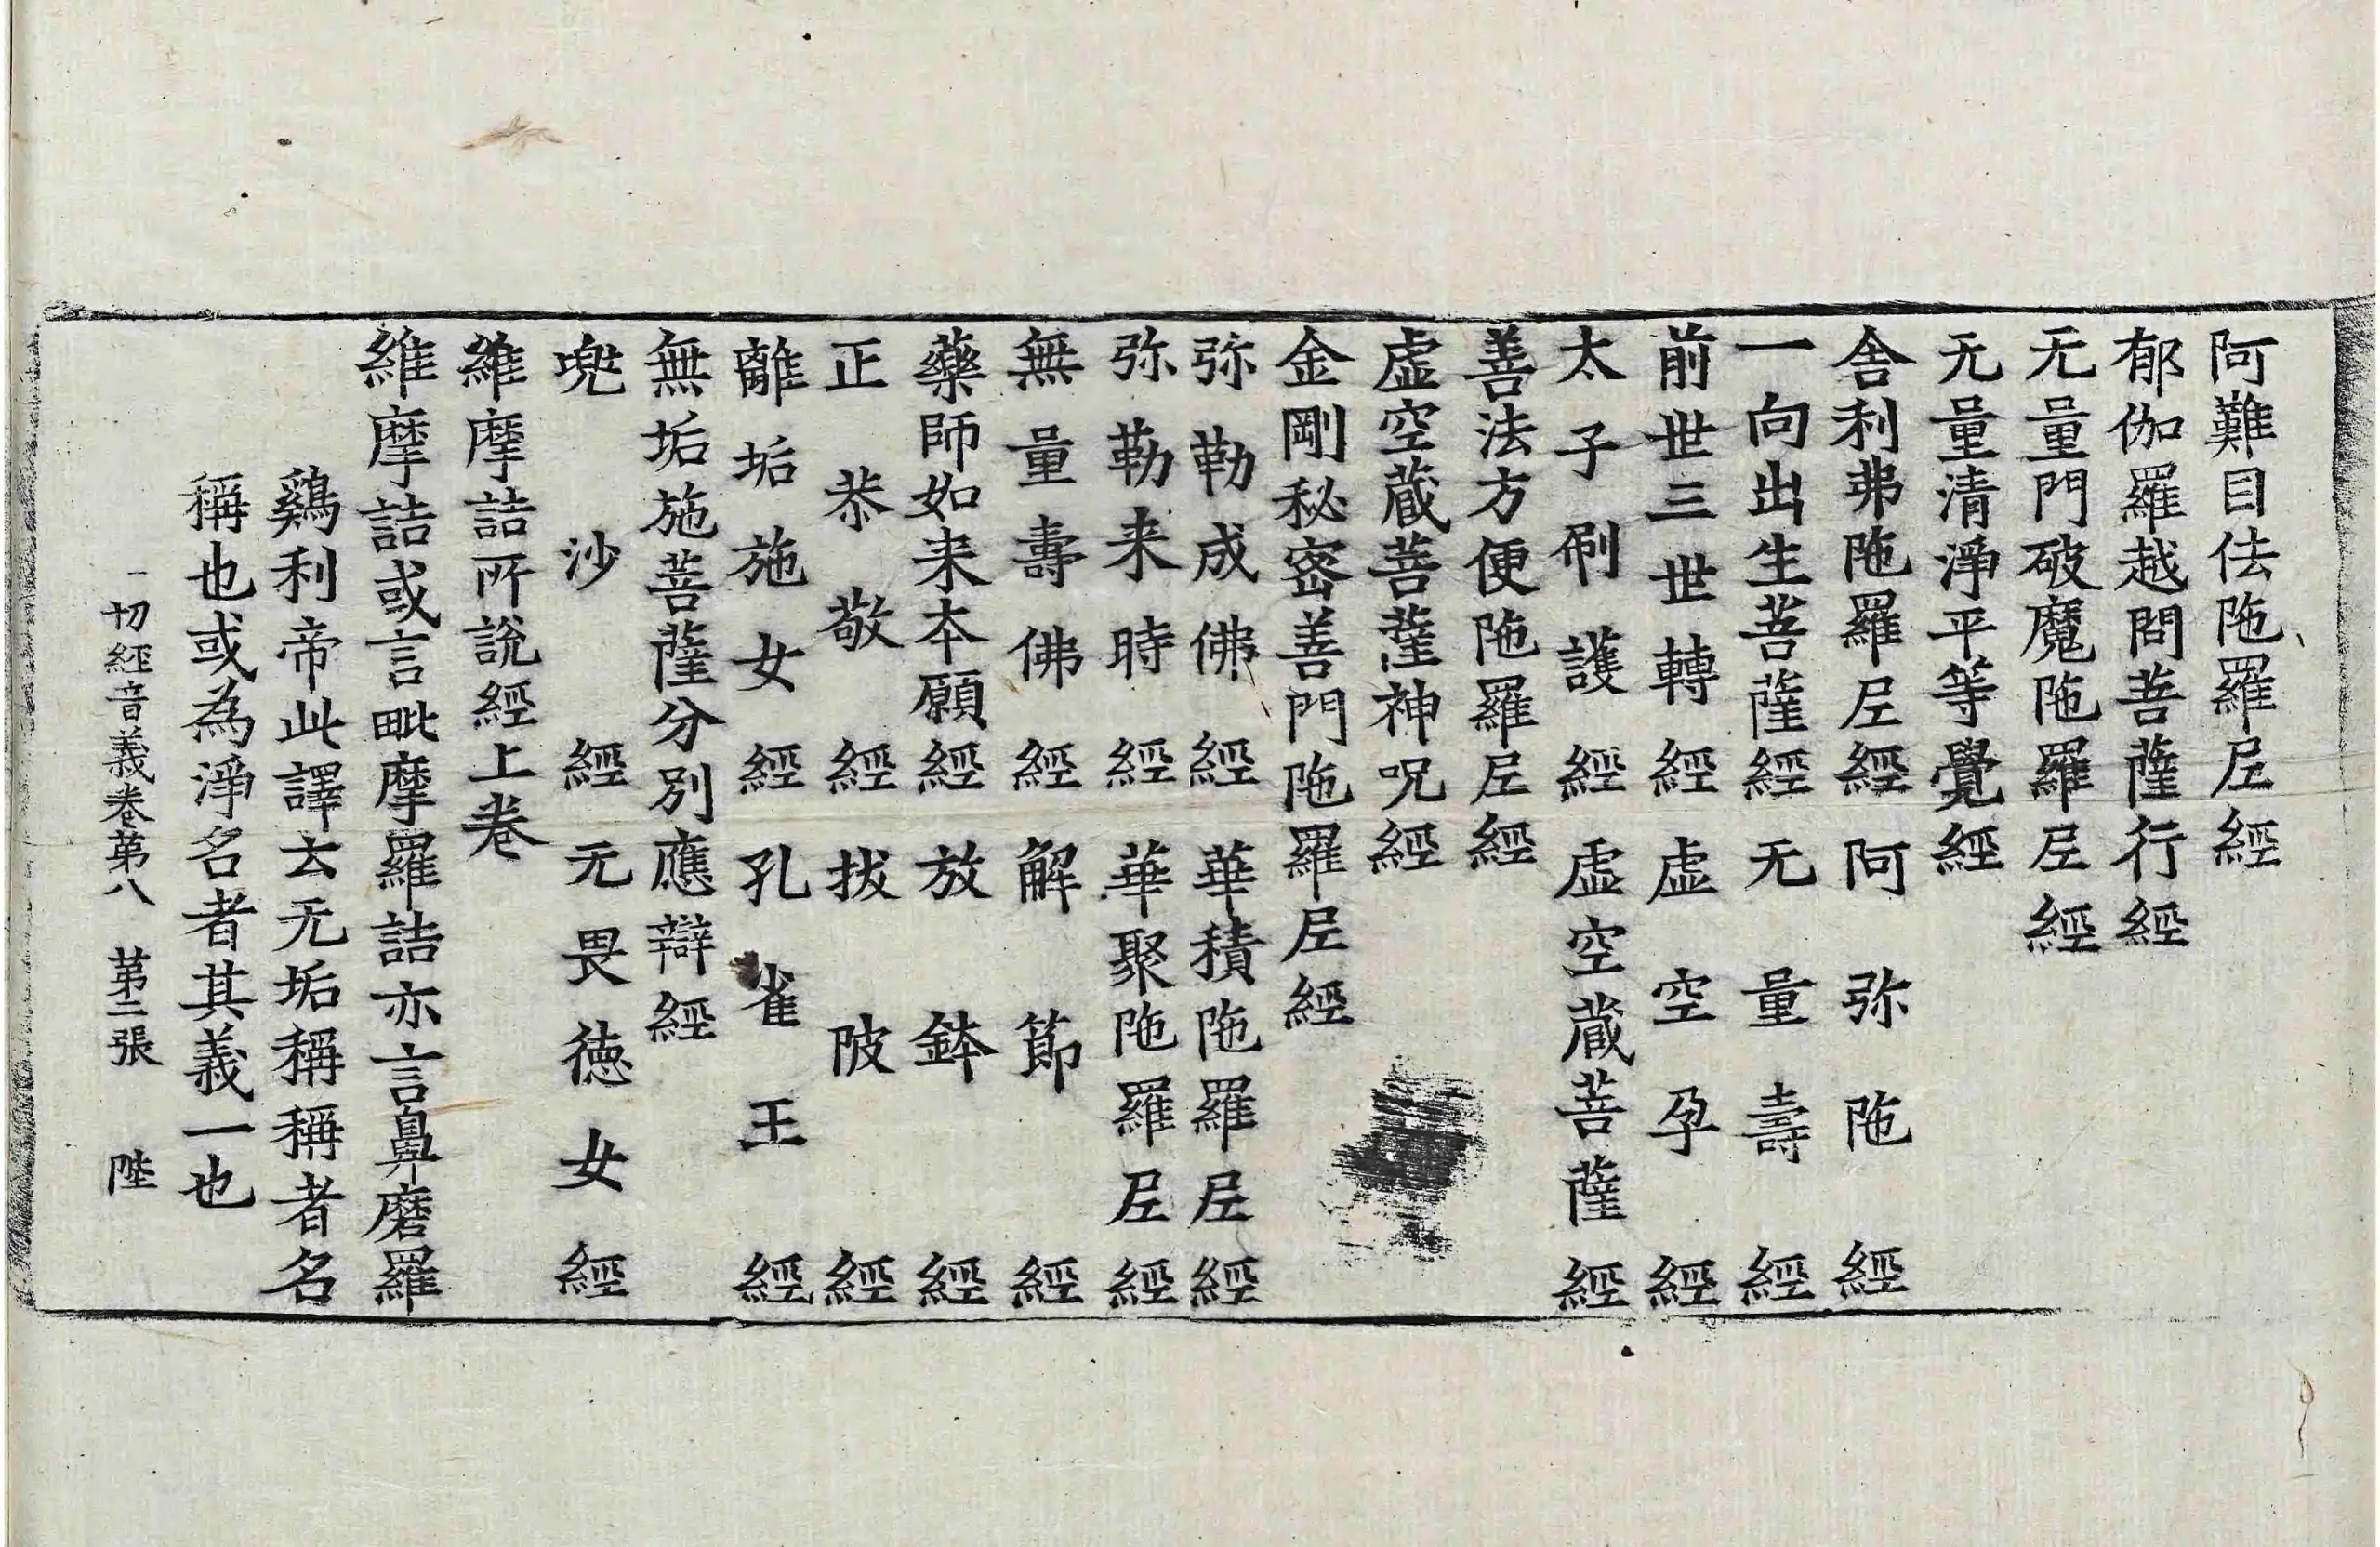 阿難目佉陁羅尼經
郁伽羅越問菩薩行經
无量門破魔陁羅尼經
无量清淨平等覺經
舎利弗陁羅尼經 阿弥陁經
一向出生菩薩經 无量壽經
前世三世轉經 虛空孕經
太子刷護經 虛空蔵菩薩經
善法方便陁羅尼經
虛空蔵菩薩神呪經
金剛秘密善門陁羅尼經
弥勒成佛經 華積陁羅尼經
弥勒来時經 華聚陁羅尼經
無量壽佛經 解節經
藥師如来本願經 放鉢經
正恭敬經 拔陂經
離垢施女經 孔雀王經
無垢施菩薩分別應辯經
兠沙經 无畏德女經
維摩詰所說經上卷
維摩詰或言毗摩羅詰亦言鼻磨羅
鷄利帝此譯云无垢稱稱者名
稱也或為淨名者其義一也
一切經音義卷苐八 苐二張 陛